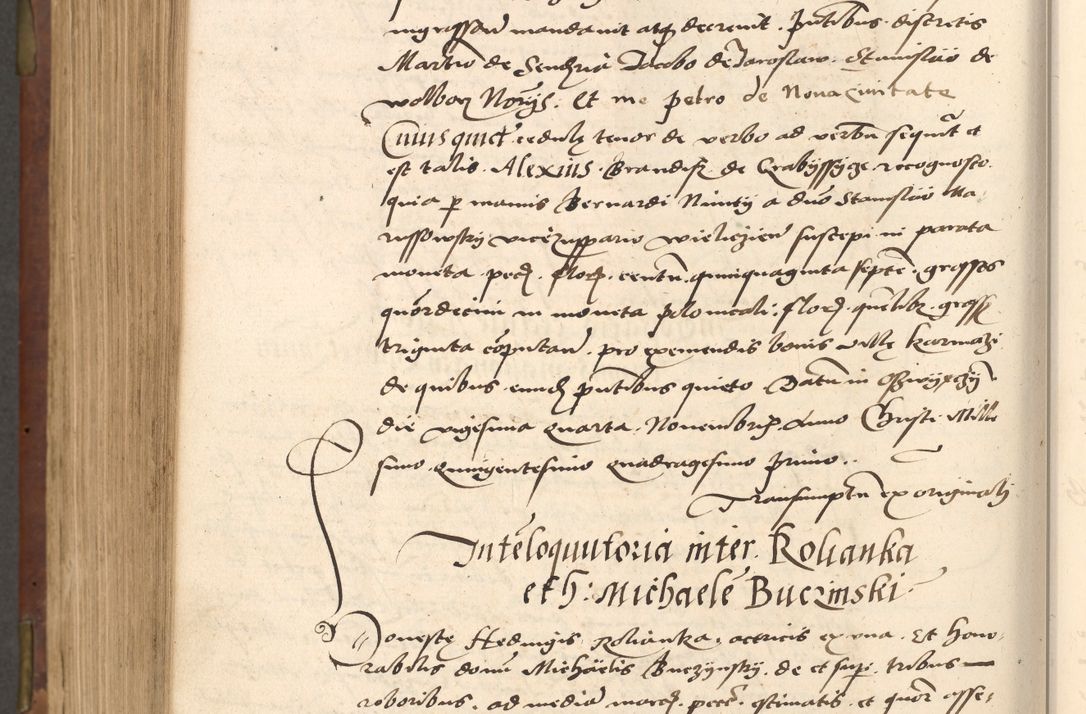 ingrossari mandavit atq3 decrevit. Pntibus discretis
Martino de Sendzria Jacobo de Jaroslaw. Stanislao de
Wolborz Norijs. Et me Petro de Nova Civitate
Cuiusquid cedulę tenor de verbo ad verbu sequit et
est talis. Alexius Brandis de Grabyssycze recognosco
quia p manus Bernardi Nuntij a dno Stanislao Ma
russowskij vicezuppario wieliczien suscepi in parata
moneta pecȝ. florȝ. centu quinquaginta septe. grossos
quordecim in moneta polonicali. florȝ quelibȝ. gross
triginta coputan. pro exemendis bonis villę Karniazi
de quibus eund pntibus quieto Datu in
die vigesima quarta Novembris Anno Christi Mille
simo Quingentesimo Quadragesimo Primo..
Transumptu ex originali
Inteloquutoria inter Rolianka
et h: Michaele Buczinski
Honestę Hedwigis Rolianka. actricis ex una. Et hono
rabilis domi Michaelis Buczynskij. de et sup. tribus
roboribus. ad media marcȝ. pecc. estimatis. et quor asse